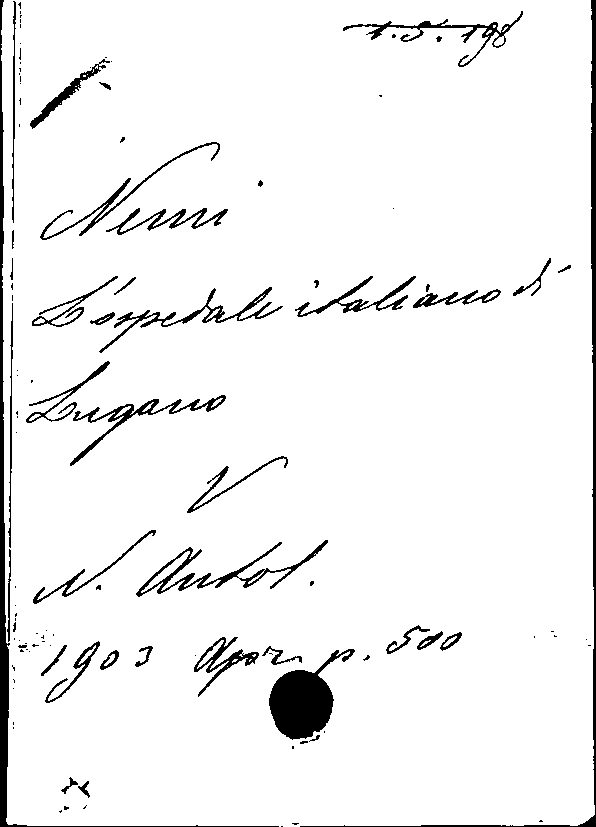 1.5.198
Nemi
L'ospedale italiano di
Lugano
V
N. Antol.
1903 Apr. p. 500